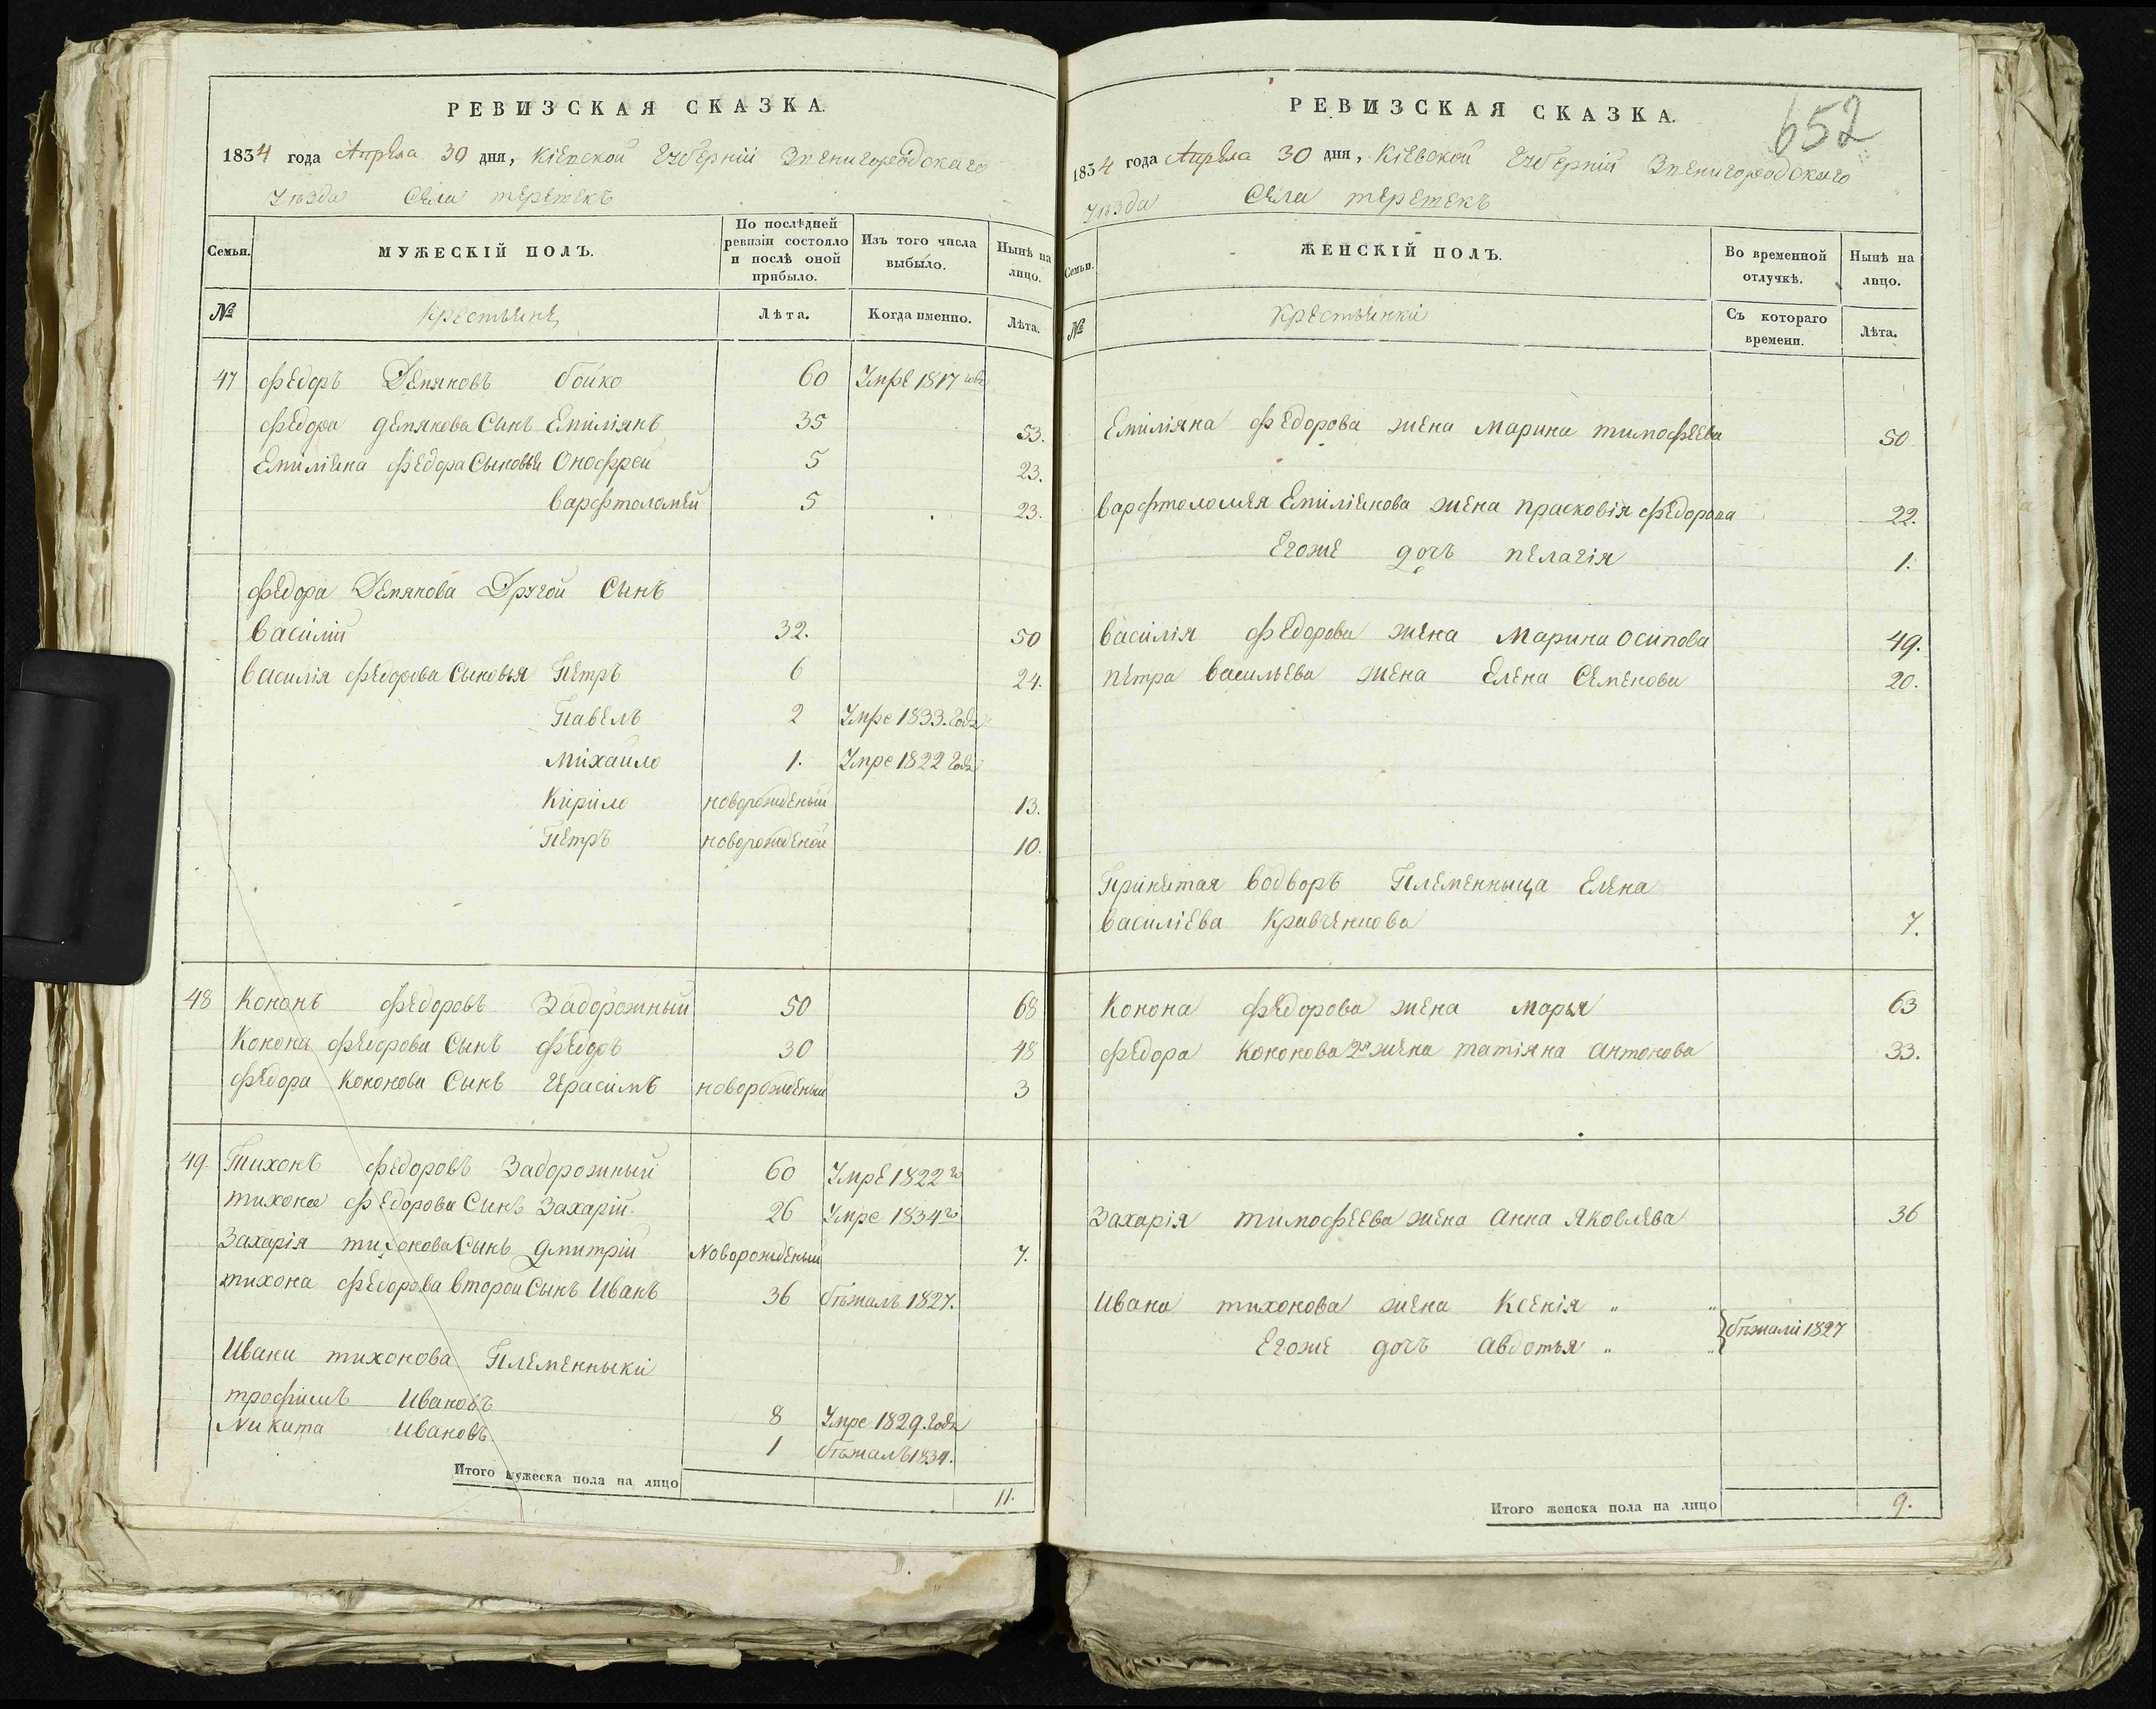 РЕВИЗСКАЯ СКАЗКА.
1834 года Апреля 30 дня, Кіевской Губерніи Звенигородскаго
Уѣзда Села терешекъ
Семьи.
МУЖЕСКІЙ ПОЛЪ.
По послѣдней ревизіи состояло и послѣ оной прибыло.
Изъ того числа выбыло.
Нынѣ на лицо.
№
Крестьяне
Лѣта.
Когда именно.
Лѣта.
47 Федоръ Демяновъ бойко 60 Умре 1817
Федора демянова Сынъ Емиліянъ 35 53.
Емиліяна Федора Сыновья Онофреи 5 23.
варфтоломей 5 23.
Федора Демянова Другой Сынъ
василій 32. 50
василія Федорова Сыновья Петръ 6 24.
Павелъ 2 Умре 1833. Года
михайло 1. Умре 1822 Года
Кирило новорожденый 13.
Петръ новорожденой 10.
48 Кононъ Федоровъ Задорожный 50 68
Конона Федорова Сынъ Федоръ 30 48
Федора Кононова Сынъ Герасимъ новорожденый 3
49. Тихонъ Федоровъ Задорожный 60 Умре 1822 го
тихона Федорова Сынъ Захарій. 26 Умре 1834 го
Захарія тихонова Сынъ дмитрій Новорожденый 7.
тихона Федорова второй Сынъ Иванъ 36 бѣжалъ 1827.
Ивана тихонова Племенныки
трофимъ Ивановъ 8 Умре 1829. Года
Никита Ивановъ. 1 бѣжалъ 1834.
Итого мужеска пола на лицо 11.
652
РЕВИЗСКАЯ СКАЗКА.
1834 года Апреля 30 дня, Кіевской Губерніи Звенигородскаго
Уѣзда Села терешекъ
Семьи.
ЖЕНСКІЙ ПОЛЪ.
Во временной отлучкѣ.
Нынѣ на лицо.
№
Крестьянки
Съ котораго времени.
Лѣта.
Емиліяна Федорова жена марина тимофеева 50
варфтоломея Емиліянова жена прасковія Федорова 22.
Егоже дочъ пелагія 1.
василія Федорова жена марина осипова 49.
петра васильева жена Елена Семенова 20.
Принятая водворъ Племенныца Елена
василіева Кравченкова 7.
Конона Федорова жена марья 63
Федора Кононова 2я жена татіяна антонова 33.
Захарія тимофеева жена анна Яковлева 36
Ивана тихонова жена Ксенія „ „
Егоже дочъ авдотья „ „ } бѣжали 1827
Итого женска пола на лицо 9.